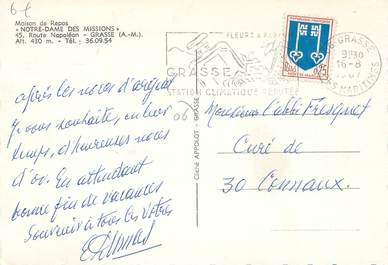 6 f
Maison de Repos
« NOTRE-DAME DES MISSIONS »
45, Route Napoléon - GRASSE (A.-M.)
Alt. 420 m. - Tél. : 36.09.54
FLEURS & PARFUMS
GRASSE
STATION CLIMATIQUE RÉPUTÉE
06 GRASSE
9H30
16-8
1967
ALPES MARITIMES
Après les noces d'argent
je vous souhaite, en leur
temps, d'heureuses noces
d'or. En attendant
bonne fin de vacances
Souvenir à tous les vôtres
Cliché APPOLOT - GRASSE
Monsieur l'abbé Fresquet
Curé de
30 Connaux.